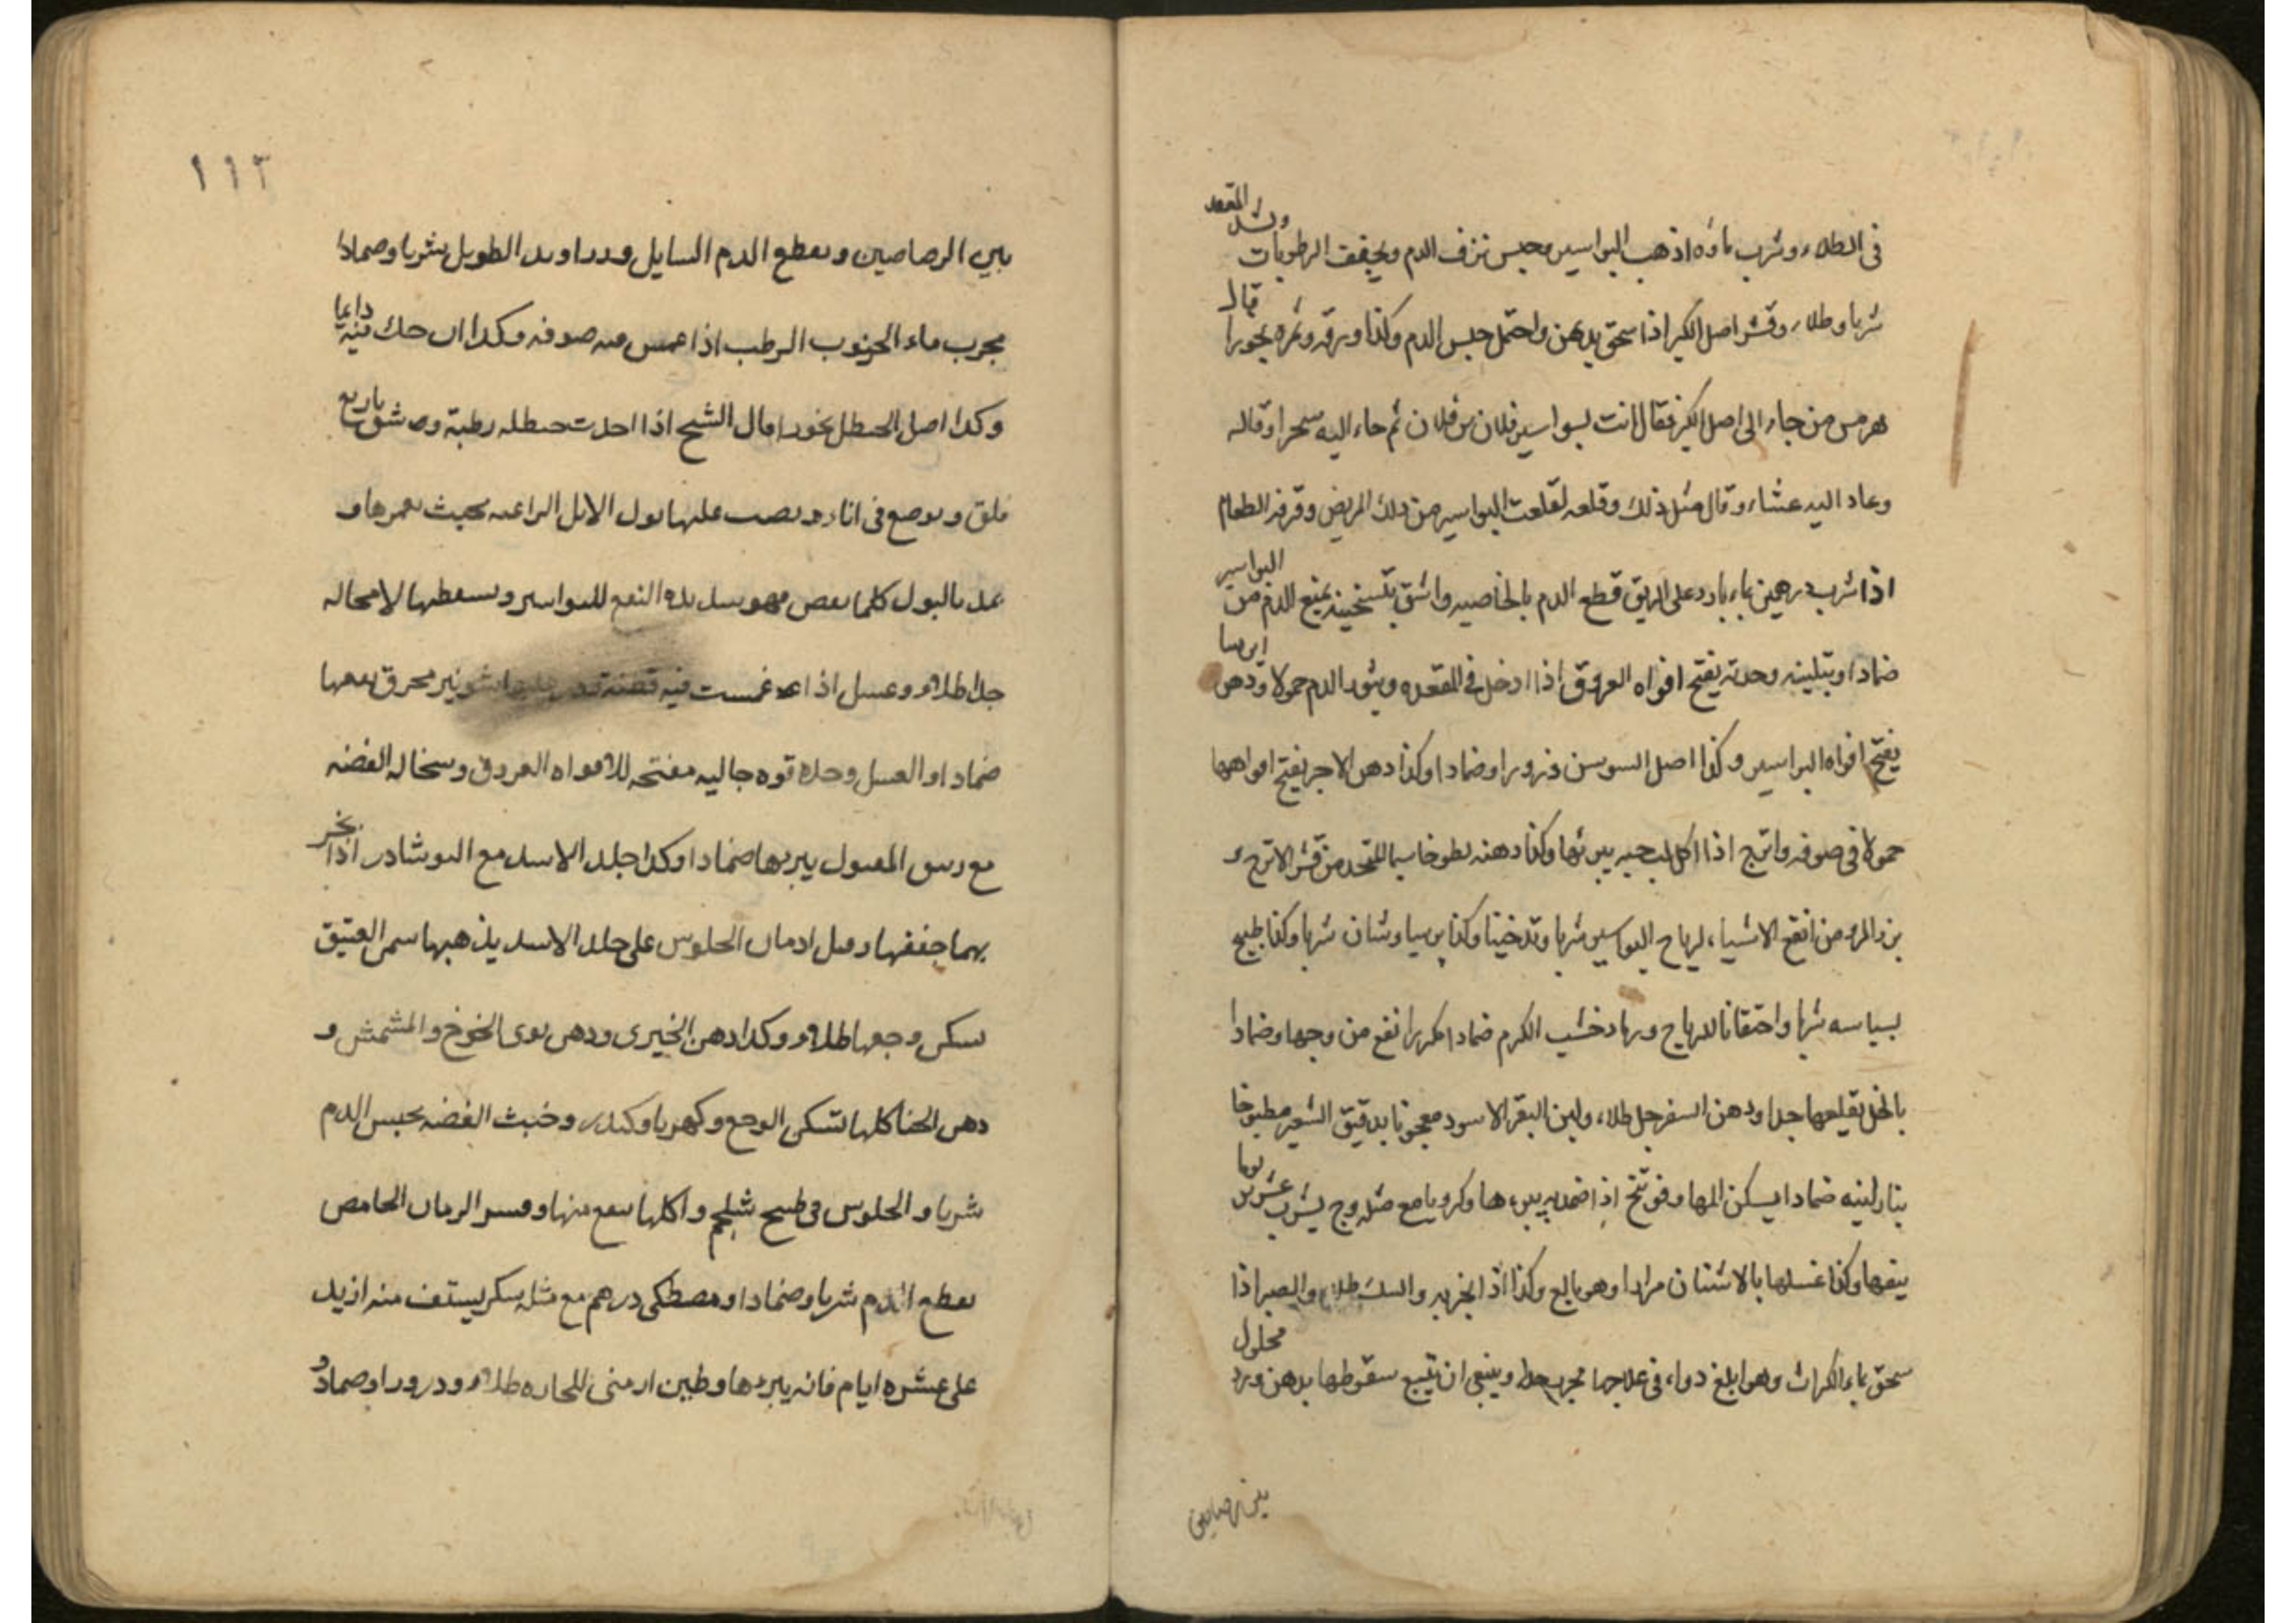 فى الطلاء وشرب ماؤه اذهب البواسير وحبس نزف الدم ويجفف الرطوبات ويشد المقعد
شربا وطلاء وقشر اصل الكبر اذا سحق بدهن واحتمل حبس الدم وكذا ورقه وثمره بخورا قال
هرمس من جاء الى اصل الكبر فقال انت لبواسير فلان بن فلان ثم جاء اليه سحرا وقاله
وعاد اليه عشاء وقال مثل ذلك وقلعه لقلعت البواسير من ذلك المريض وقرفه الطعام
اذا شرب درهمين بماء بارد على الريق قطع الدم بالخاصيه واشق بتسخينه يمنع الدم من البواسير
ضمادا وبتلينه وحدته يفتح افواه العروق اذا ادخل فى المقعده ويثور الدم حمولا ودهن ايرسا
يفتح افواه البواسير وكذا اصل السوسن ذرورا وضمادا وكذا دهن الاجر يفتح افواهها
حمولا فى صوفه واترج اذا اكل لب حبه يبرئها وكذا دهنه لطوخا سيما المتخذ من قشر الاترج و
بزر المرو من انفع الاشياء لرياح البواسير شربا وتدخينا وكذا برسياوشان شربا وكذا طبيخ
بسباسه شربا واحتقانا للرياح ورماد خشب الكرم ضمادا مكررا نفع من وجعها وضمادا
بالخل يقلعها جدا ودهن السفرجل طلاء ولبن البقر الاسود معجونا بدقيق الشعير مطبوخا
بنار لينه ضمادا يسكن المها وفوتنج اذا ضمد به يبرءها وكرويا مع مثله وج يشرب عشرين يوما
ينفعها وكذا غسلها بالاشنان مرارا وهو بالع وكذا والصبر اذا
سحق بماء الكراث وهو ابلغ دواء فى علاجها مجرب وينبغى ان يتبع سقوطها بدهن ورد محلول
بين الرصاصين
١١٢
بين الرصاصين ويقطع الدم السايل وزراوند الطويل شربا وضمادا
مجرب ماء الخرنوب الرطب اذا غمس فيه صوفه وكذا ان حك فيه دايما
وكذا اصل الحنظل بخورا قال الشيخ اذا اخذت حنظله رطبة وشق باربع
فلق ويوضع فى اناء ويصب عليها بول الابل الراعيه بحيث يغمرها و
يمد بالبول كلما نقص فهو شديد النفع للبواسير ويسقطها لا محاله
جدا طلاء وعسل اذا غمست فيه قطنة شونيز محرق ينفعها
ضمادا والعسل وحده قوه جاليه مفتحه للافواه العروق وسخاله الفضه
مع زيبق المقتول يبريها ضمادا وكذا جلد الاسد مع النوشادر اذا بخر
بهما جففها وقيل ادمان الجلوس على جلد الاسد يذهبها سمن العتيق
يسكن وجعها طلاء وكذا دهن الخيرى ودهن نوى الخوخ والمشمش و
دهن الحنا كلها تسكن الوجع وكهربا وكندر وخبث الفضه يحبس الدم
شربا والجلوس فى طبيخ شلجم واكلها ينفع منها وقشر الرمان الحامض
يقطع الدم شربا وضمادا ومصطكى درهم مع مثله سكر يستف منه ازيد
على عشره ايام فانه يبريها وطين ارمنى للحاره طلاء وذرورا وضمادا و